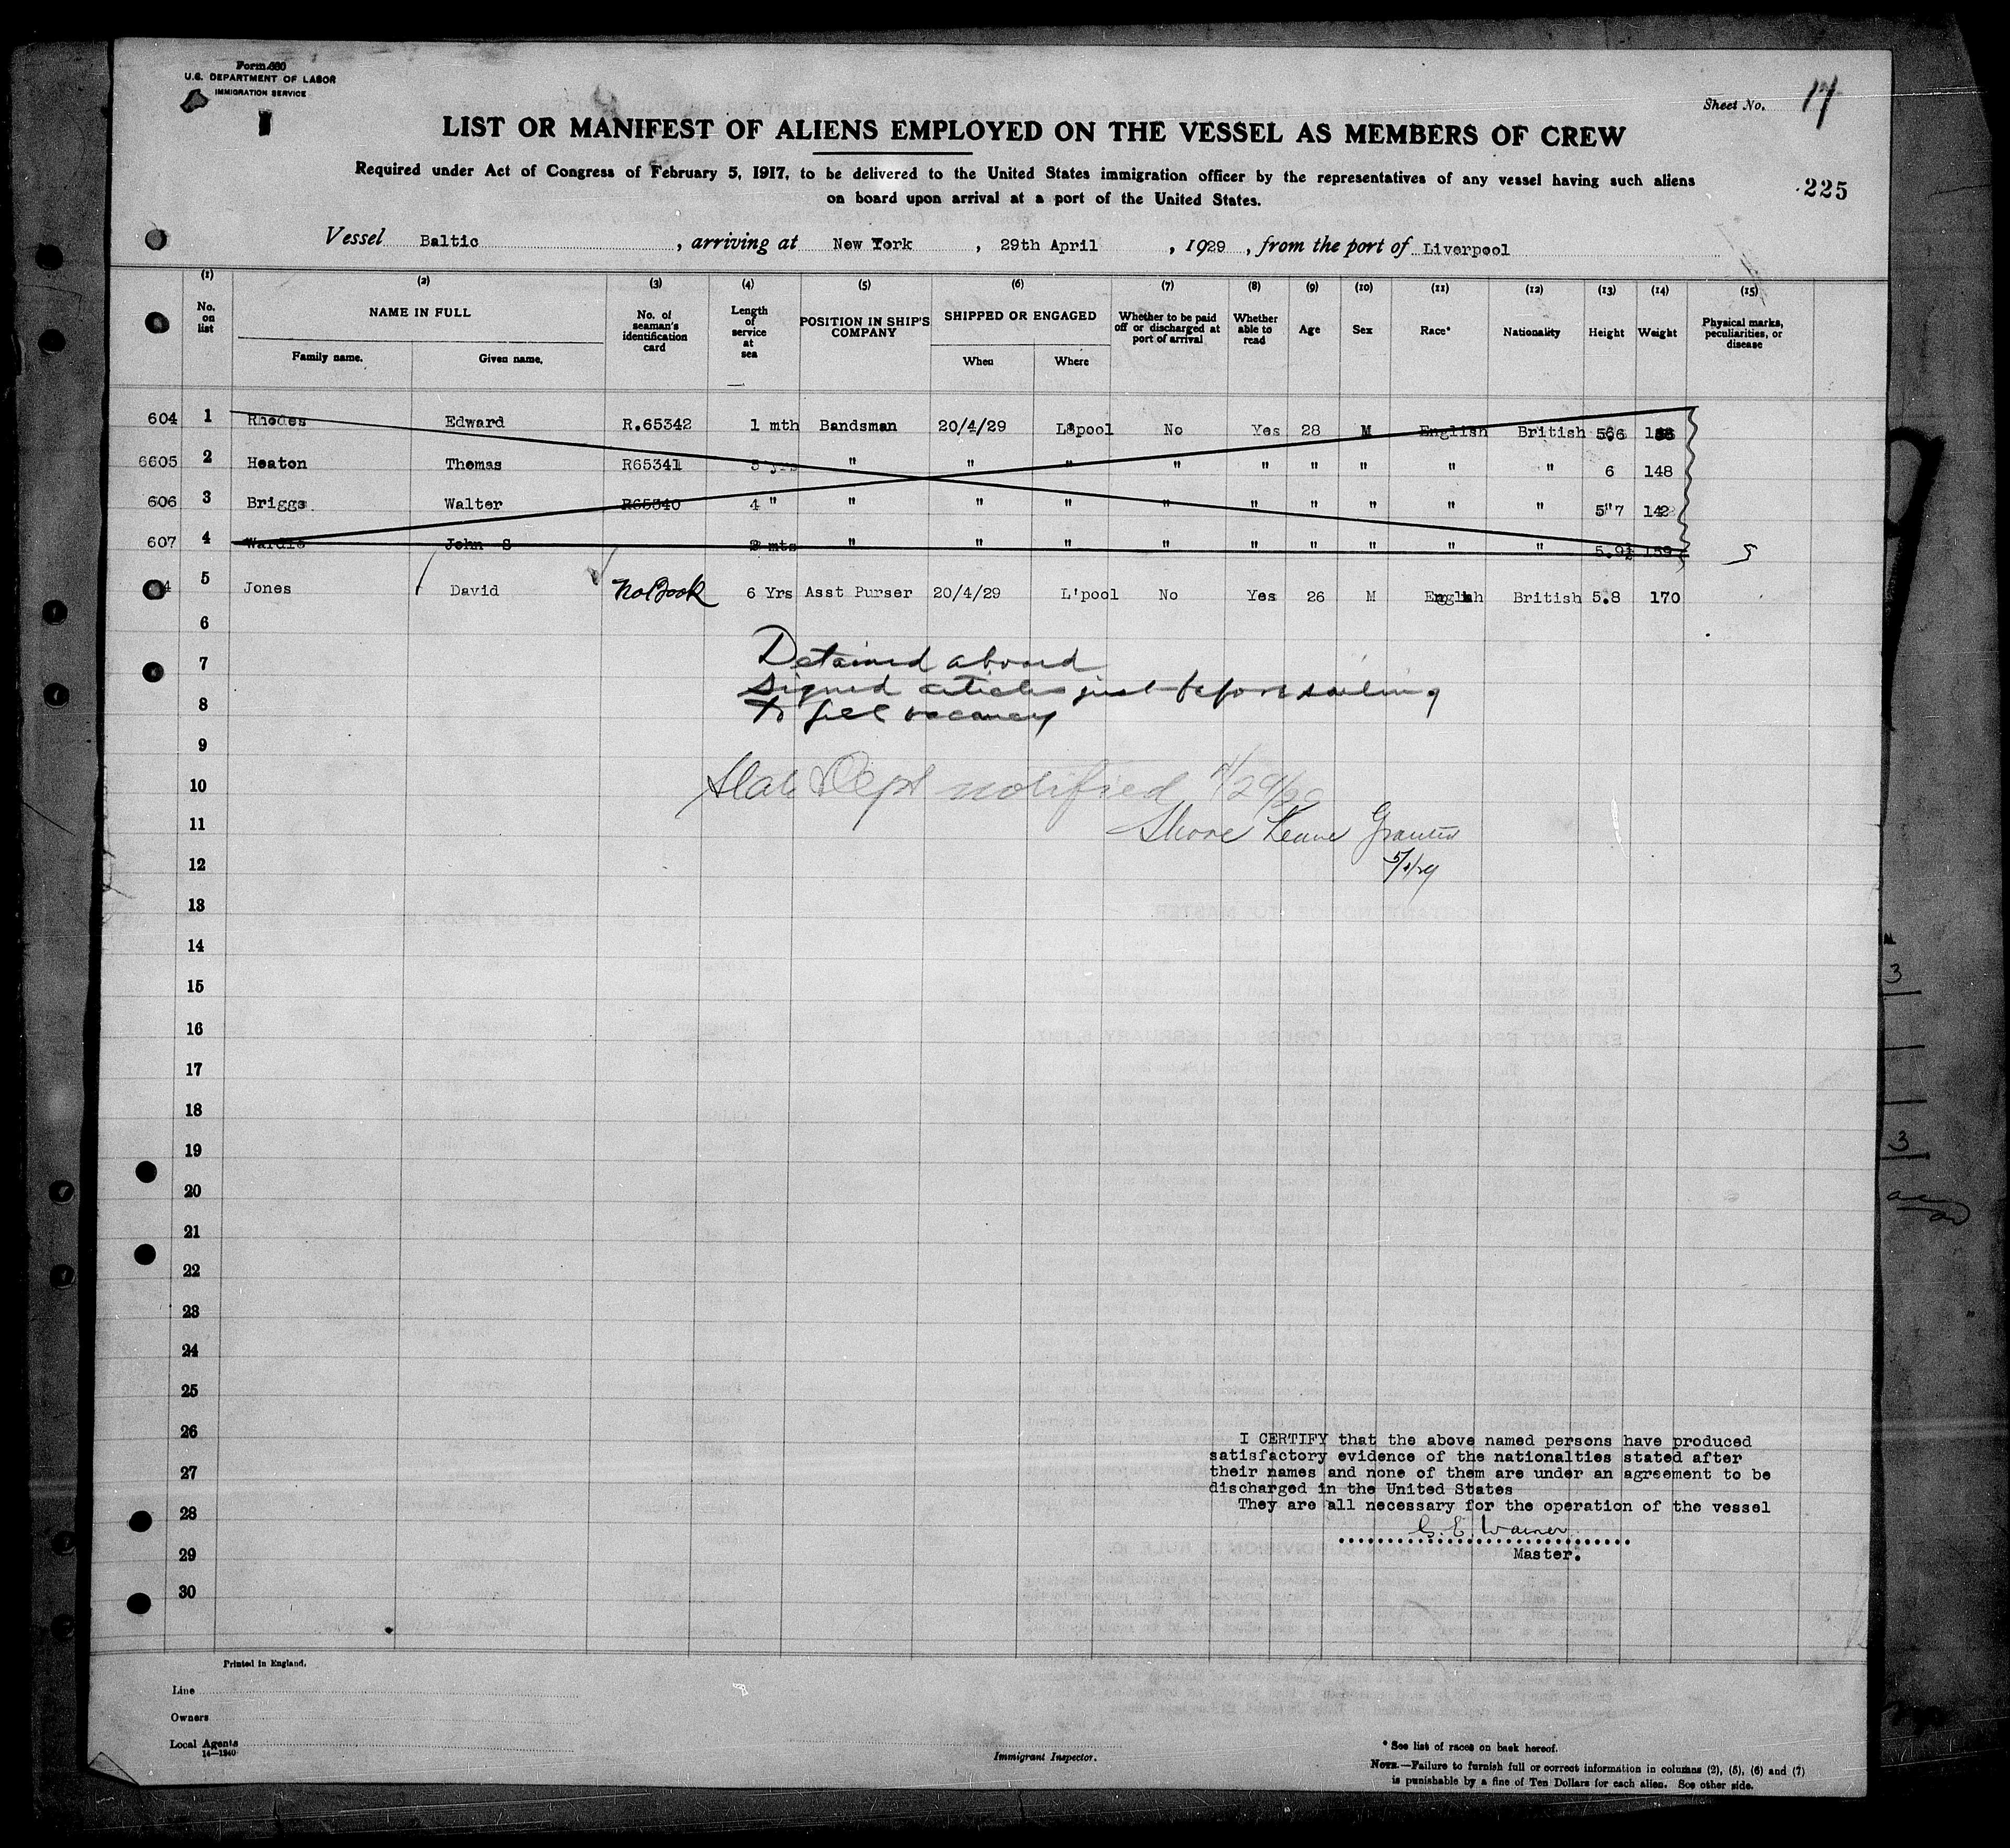 Form 680
U.S. DEPARTMENT OF LABOR
IMMIGRATION SERVICE
Sheet No. 17
LIST OR MANIFEST OF ALIENS EMPLOYED ON THE VESSEL AS MEMBERS OF CREW
Required under Act of Congress of February 5, 1917, to be delivered to the United States immigration officer by the representatives of any vessel having such aliens
on board upon arrival at a port of the United States.
225
Vessel Baltic, arriving at New York, 29th April, 1929, from the port of Liverpool
(1) (2) (3) (4) (5) (6) (7) (8) (9) (10) (11) (12) (13) (14) (15)
No. on list NAME IN FULL Family name. Given name. No. of seaman's identification card Length of service at sea POSITION IN SHIP'S COMPANY SHIPPED OR ENGAGED When Where Whether to be paid off or discharged at port of arrival Whether able to read Age Sex Race* Nationality Height Weight Physical marks, peculiarities, or disease
604 1 Rhodes Edward R.65342 1 mth Bandsman 20/4/29 L'pool No Yes 28 M English British
6605 2 Heaton Thomas R65341 5 yrs " " " " " " " " " 6 148
606 3 Briggs Walter R65340 4 " " " " " " " " " " 5"7 142
607 4 Wardle John S mts " " " " " " " " " 5.9½ 159
5 Jones David No Book 6 Yrs Asst Purser 20/4/29 L'pool No Yes 26 M English British 5.8 170
6
7 Detained aboard
signed articles just before sailing
8 to fill vacancy
9
10 State Dept notified 4/29/29
11 Shore Leave Granted
12 5/1/29
13
14
15
16
17
18
19
20
21
22
23
24
25
26
27
28
29
30
I CERTIFY that the above named persons have produced
satisfactory evidence of the nationalties stated after
their names and none of them are under an agreement to be
discharged in the United States
They are all necessary for the operation of the vessel
Master.
Printed in England.
Line
Owners
Local Agents
14—1240
Immigrant Inspector.
* See list of races on back hereof.
NOTE.—Failure to furnish full or correct information in columns (2), (5), (6) and (7)
is punishable by a fine of Ten Dollars for each alien. See other side.